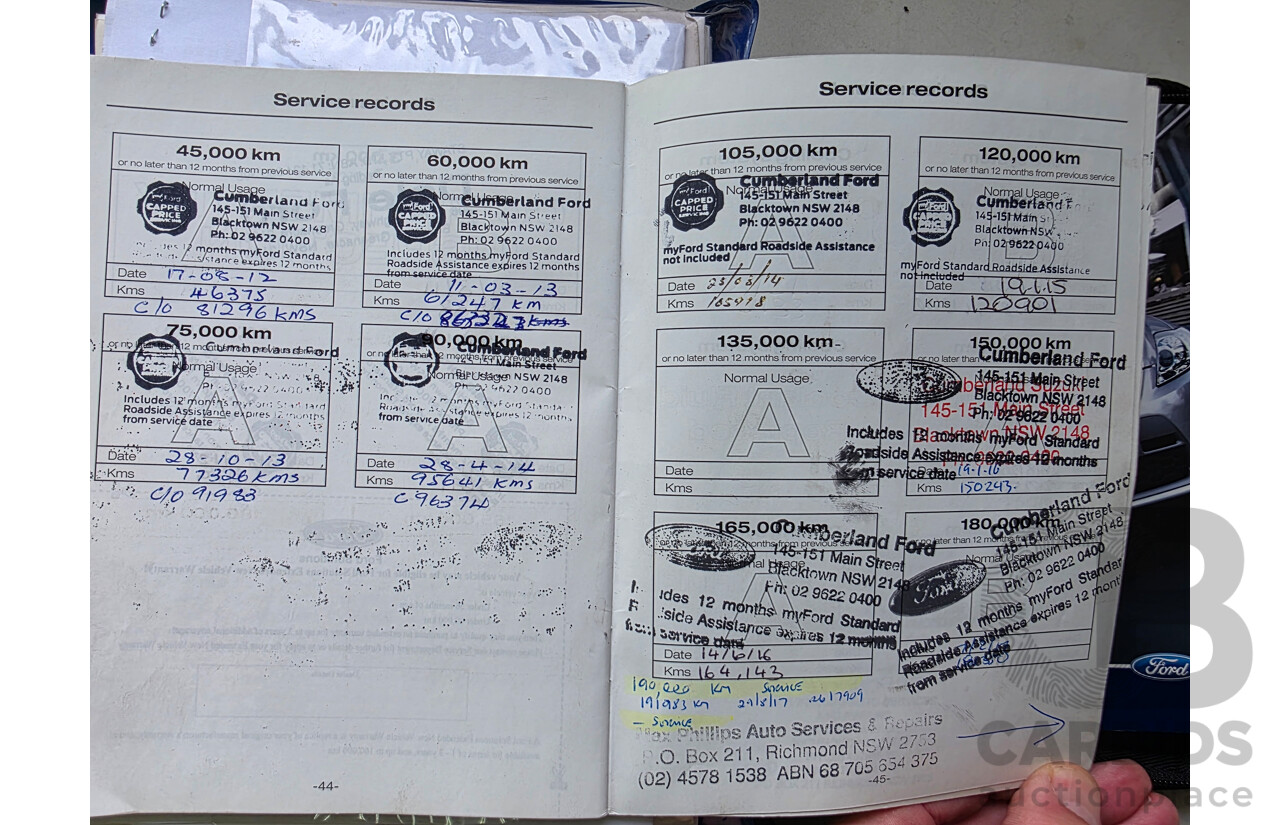 Service records
45,000 km
or no later than 12 months from previous service
Normal Usage
myFord
CAPPED
PRICE
SERVICING
Cumberland Ford
145-151 Main Street
Blacktown NSW 2148
Ph: 02 9622 0400
Includes 12 months myFord Standard
Roadside Assistance expires 12 months
Date 17-08-12
Kms 46375
C/O 81296 KMS
60,000 km
or no later than 12 months from previous service
Normal Usage
myFord
CAPPED
PRICE
Cumberland Ford
145-151 Main Street
Blacktown NSW 2148
Ph: 02 9622 0400
Includes 12 months myFord Standard
Roadside Assistance expires 12 months
from service date
Date 11-03-13
Kms 61247 KM
C/O
75,000 km
Cumberland Ford
Normal Usage
Includes 12 months myFord Standard
Roadside Assistance expires 12 months
from service date
Date 28-10-13
Kms 77326 KMS
C/O 91983
90,000 km
or no later than 12 months from previous service
Cumberland Ford
145-151 Main Street
Blacktown NSW 2148
Normal Usage
Ph: 02 9622 0400
Includes 12 months myFord Standard
Roadside Assistance expires 12 months
from service date
Date 28-4-14
Kms 95641 KMS
C 96374
-44-
Service records
105,000 km
or no later than 12 months from previous service
Normal Usage
myFord
CAPPED
PRICE
SERVICING
Cumberland Ford
145-151 Main Street
Blacktown NSW 2148
Ph: 02 9622 0400
myFord Standard Roadside Assistance
not included
A
Date
Kms 105418
120,000 km
or no later than 12 months from previous service
Normal Usage
Cumberland F
145-151 Main S
Blacktown NSW
Ph: 02 9622 0400
myFord Standard Roadside Assistance
not included
Date 19.1.15
Kms 120901
135,000 km
or no later than 12 months from previous service
Normal Usage
A
Date
Kms
150,000 km
Cumberland Ford
145-151 Main Street
Blacktown NSW 2148
Ph: 02 9622 0400
Cumberland Suzuki
145-151 Main Street
Blacktown NSW 2148
Includes 12 months myFord Standard
Roadside Assistance expires 12 months
from service date
19.1.16
Kms 150243.
165,000 km
Cumberland Ford
145-151 Main Street
Blacktown NSW 2148
Ph: 02 9622 0400
Includes 12 months myFord Standard
Roadside Assistance expires 12 months
from service date
Date 14/6/16
Kms 164,143
180,000 km
Cumberland Ford
145-151 Main Street
Blacktown NSW 2148
Ph: 02 9622 0400
Ford
Includes 12 months myFord Standard
Roadside Assistance expires 12 months
from service date
190,000 KM Service
- Service
Max Phillips Auto Services & Repairs
P.O. Box 211, Richmond NSW 2753
(02) 4578 1538 ABN 68 705 654 375
-45-
Ford